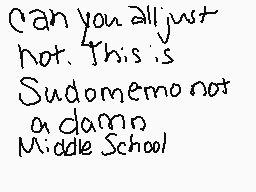 can you all just
not. This is
Sudomemo not
a damn
Middle School